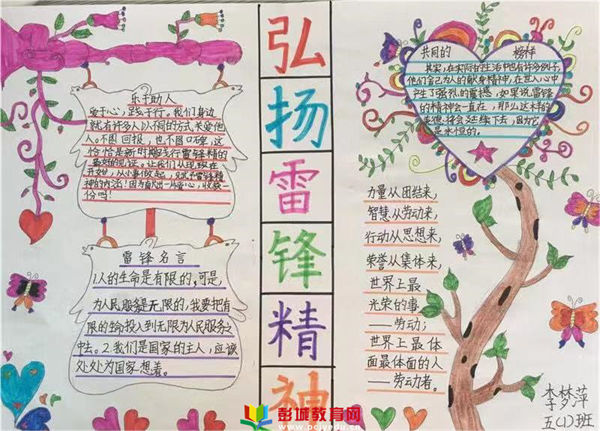 弘
扬
雷
锋
精
神
乐于助人
爱于心，践于行。我们身边
就有许多人以不同的方式关爱他
人。不图回报，也不图口碑，这
恰恰是新时期践行雷锋精的
最好的见证。让我们从现在
开始，从小事做起，
神的内涵！因为献出一片爱心，收获一
份吗！
雷锋名言
1.人的生命是有限的，可是，
为人民服务是无限的，我要把有
限的生命投入到无限为人民服务之
中去。2.我们是国家的主人，应该
处处为国家想着。
共目的 榜样
其实，在实际的生活中也有许多例子，
他们舍己为人的献身精神中，在世人心中
产生了强烈的震撼，如果说雷锋
的精神会一直在，那么这样的
美德将会延续下去，因为它
是永恒的。
力量从团结来，
智慧从劳动来，
行动从思想来，
荣誉从集体来，
世界上最
光荣的事
——劳动；
世界上最体
面最体面的人
——劳动者。
李梦萍
五(1)班
彭城教育网
www.pcjyedu.cn